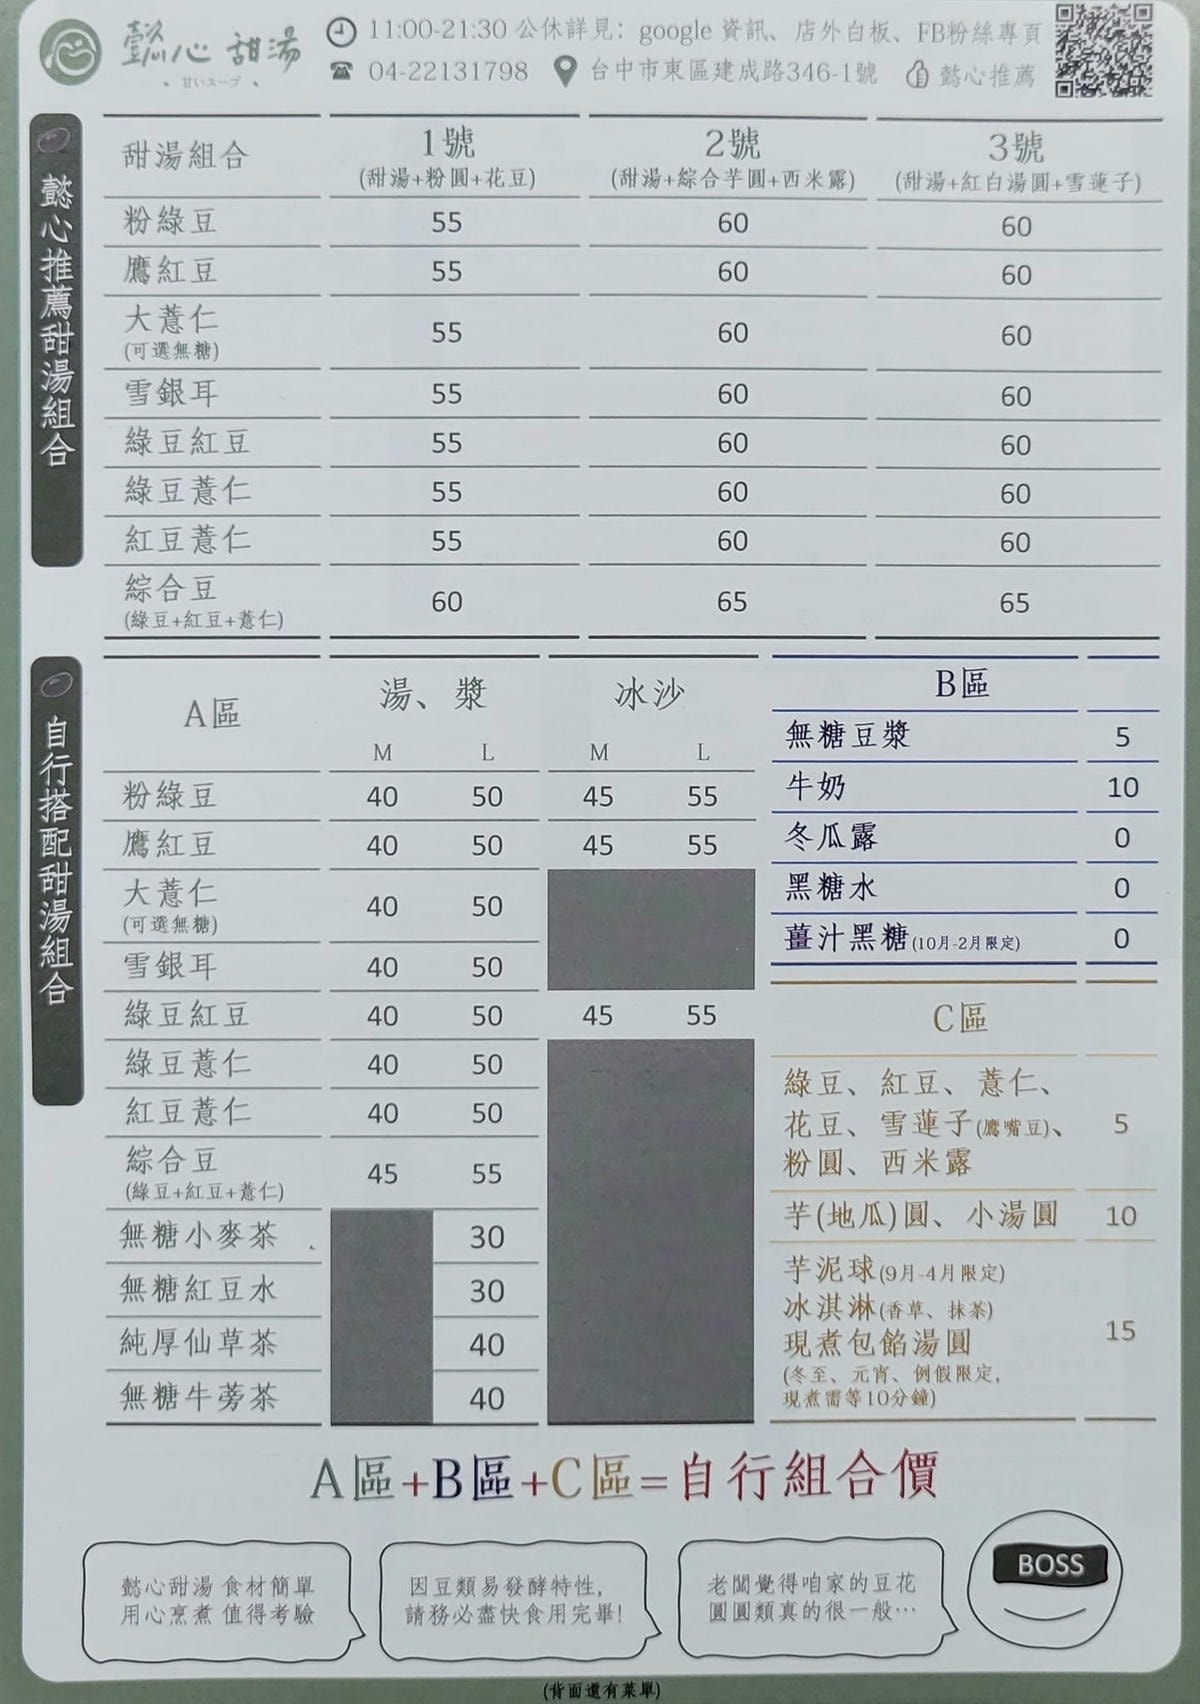 懿心 甜湯
、甘いスープ、
11:00-21:30 公休詳見：google 資訊、店外白板、FB粉絲專頁
04-22131798 台中市東區建成路346-1號 懿心推薦
懿心推薦甜湯組合
甜湯組合 1號 2號 3號
(甜湯+粉圓+花豆) (甜湯+綜合芋圓+西米露) (甜湯+紅白湯圓+雪蓮子)
粉綠豆 55 60 60
鷹紅豆 55 60 60
大薏仁 55 60 60
(可選無糖)
雪銀耳 55 60 60
綠豆紅豆 55 60 60
綠豆薏仁 55 60 60
紅豆薏仁 55 60 60
綜合豆 60 65 65
(綠豆+紅豆+薏仁)
自行搭配甜湯組合
A區 湯、漿 冰沙
M L M L
粉綠豆 40 50 45 55
鷹紅豆 40 50 45 55
大薏仁 40 50
(可選無糖)
雪銀耳 40 50
綠豆紅豆 40 50 45 55
綠豆薏仁 40 50
紅豆薏仁 40 50
綜合豆 45 55
(綠豆+紅豆+薏仁)
無糖小麥茶 30
無糖紅豆水 30
純厚仙草茶 40
無糖牛蒡茶 40
B區
無糖豆漿 5
牛奶 10
冬瓜露 0
黑糖水 0
薑汁黑糖(10月-2月限定) 0
C區
綠豆、紅豆、薏仁、
花豆、雪蓮子(鷹嘴豆)、 5
粉圓、西米露
芋(地瓜)圓、小湯圓 10
芋泥球(9月-4月限定)
冰淇淋(香草、抹茶)
現煮包餡湯圓 15
(冬至、元宵、例假限定,
現煮需等10分鐘)
A區+B區+C區=自行組合價
懿心甜湯 食材簡單
用心烹煮 值得考驗
因豆類易發酵特性,
請務必盡快食用完畢!
老闆覺得咱家的豆花
圓圓類真的很一般…
BOSS
(背面還有菜單)